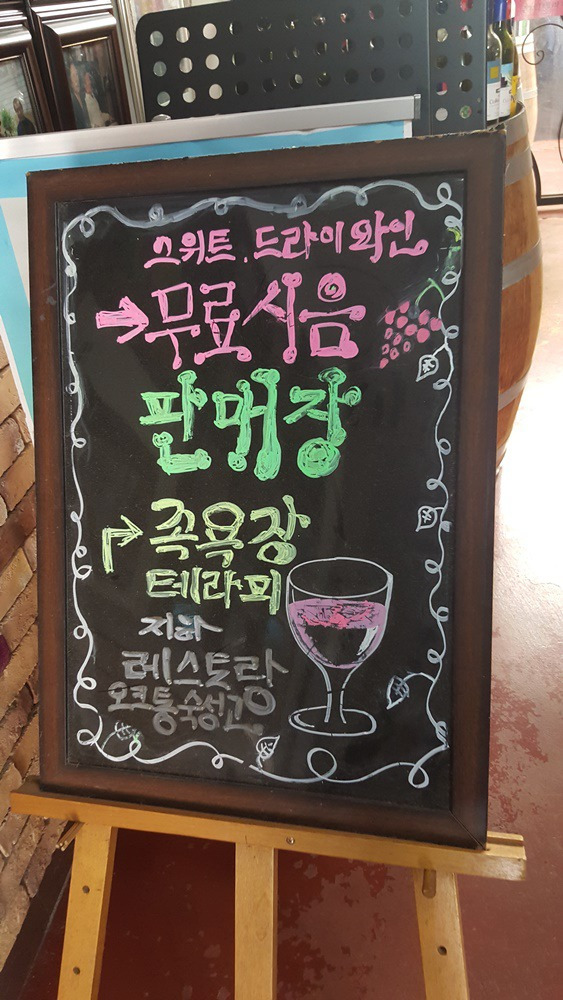 스위트, 드라이와인
→무료시음
판매장
족욕장
테라피
지하
레스토랑
오크통숙성고